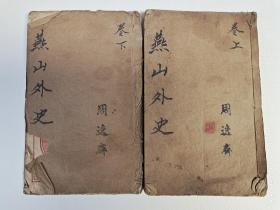 卷上
燕山外史
周逵齋
卷下
燕山外史
周逵齋